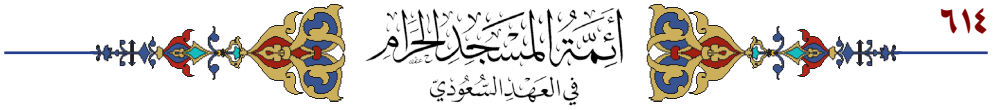 ٦١٤
أَئِمَّةُ المَسْجِدِ الحَرَامِ
فِي العَهْدِ السُّعُودِيّ